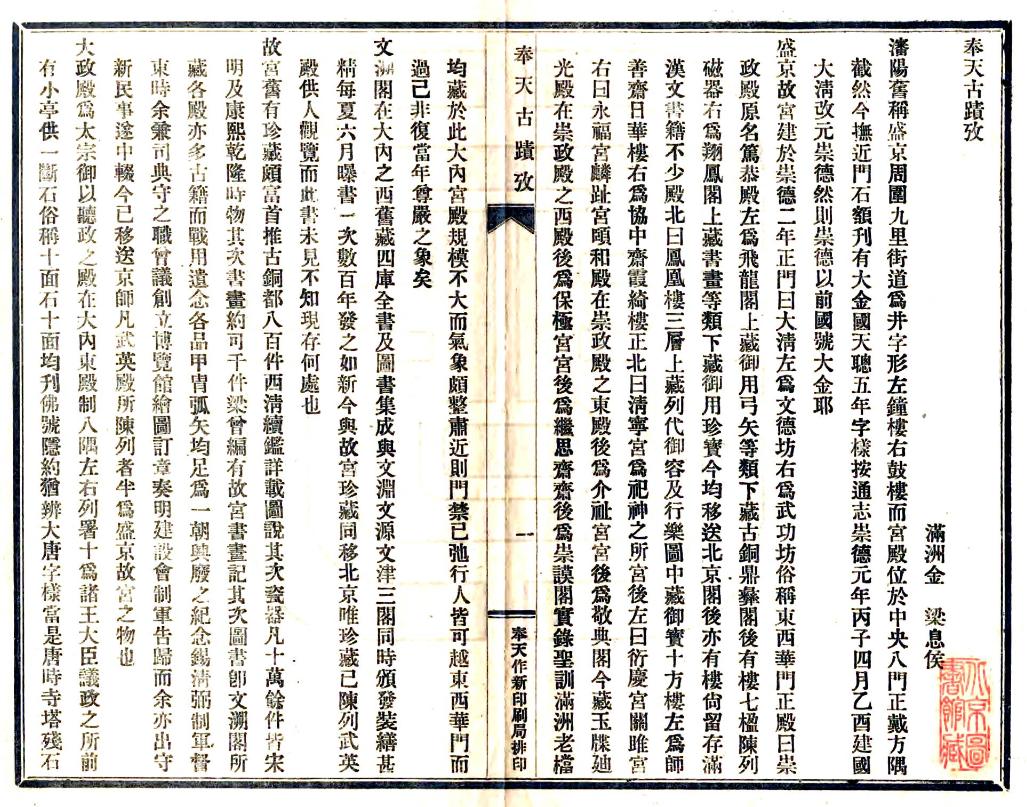 奉天古蹟攷
滿洲金 梁息侯
瀋陽舊稱盛京周圍九里街道爲井字形左鐘樓右鼓樓而宮殿位於中央八門正戴方隅
截然今撫近門石額刊有大金國天聰五年字樣按通志崇德元年丙子四月乙酉建國
大清改元崇德然則崇德以前國號大金耶
盛京故宮建於崇德二年正門曰大清左爲文德坊右爲武功坊俗稱東西華門正殿曰崇
政殿原名篤恭殿左爲飛龍閣上藏御用弓矢等類下藏古銅鼎彝閣後有樓七楹陳列
磁器右爲翔鳳閣上藏書畫等類下藏御用珍寶今均移送北京閣後亦有樓尙留存滿
漢文書籍不少殿北曰鳳凰樓三層上藏列代御容及行樂圖中藏御寶十方樓左爲師
善齋日華樓右爲協中齋霞綺樓正北曰清寧宮爲祀神之所宮後左曰衍慶宮關雎宮
右曰永福宮麟趾宮頤和殿在崇政殿之東殿後爲介祉宮宮後爲敬典閣今藏玉牒廸
光殿在崇政殿之西殿後爲保極宮宮後爲繼思齋齋後爲崇謨閣實錄聖訓滿洲老檔
奉天古蹟攷
一
奉天作新印刷局排印
均藏於此大內宮殿規模不大而氣象頗整肅近則門禁已弛行人皆可越東西華門而
過已非復當年尊嚴之象矣
文溯閣在大內之西舊藏四庫全書及圖書集成與文淵文源文津三閣同時頒發裝繕甚
精每夏六月曝書一次數百年發之如新今與故宮珍藏同移北京唯珍藏已陳列武英
殿供人觀覽而此書未見不知現存何處也
故宮舊有珍藏頗富首推古銅都八百件西清續鑑詳載圖說其次瓷器凡十萬餘件皆宋
明及康熙乾隆時物其次書畫約可千件梁曾編有故宮書畫記其次圖書卽文溯閣所
藏各殿亦多古籍而戰用遺念各品甲冑弧矢均足爲一朝興廢之紀念錫清弼制軍督
東時余兼司典守之職曾議創立博覽館繪圖訂章奏明建設會制軍告歸而余亦出守
新民事遂中輟今已移送京師凡武英殿所陳列者半爲盛京故宮之物也
大政殿爲太宗御以聽政之殿在大內東殿制八隅左右列署十爲諸王大臣議政之所前
有小亭供一斷石俗稱十面石十面均刋佛號隱約猶辨大唐字樣當是唐時寺塔殘石